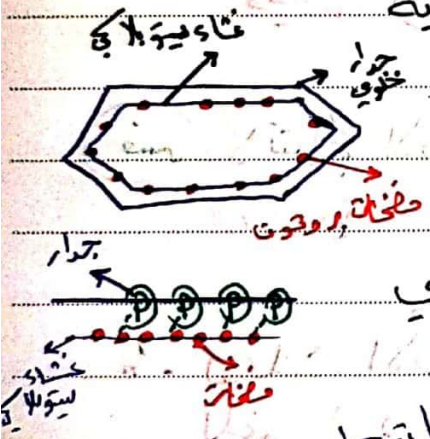 غشاء سيتوبلازمي
جدار
خلوي
مضخات بروتون
جدار
P P P P
غشاء
سيتوبلازمي
مضخات